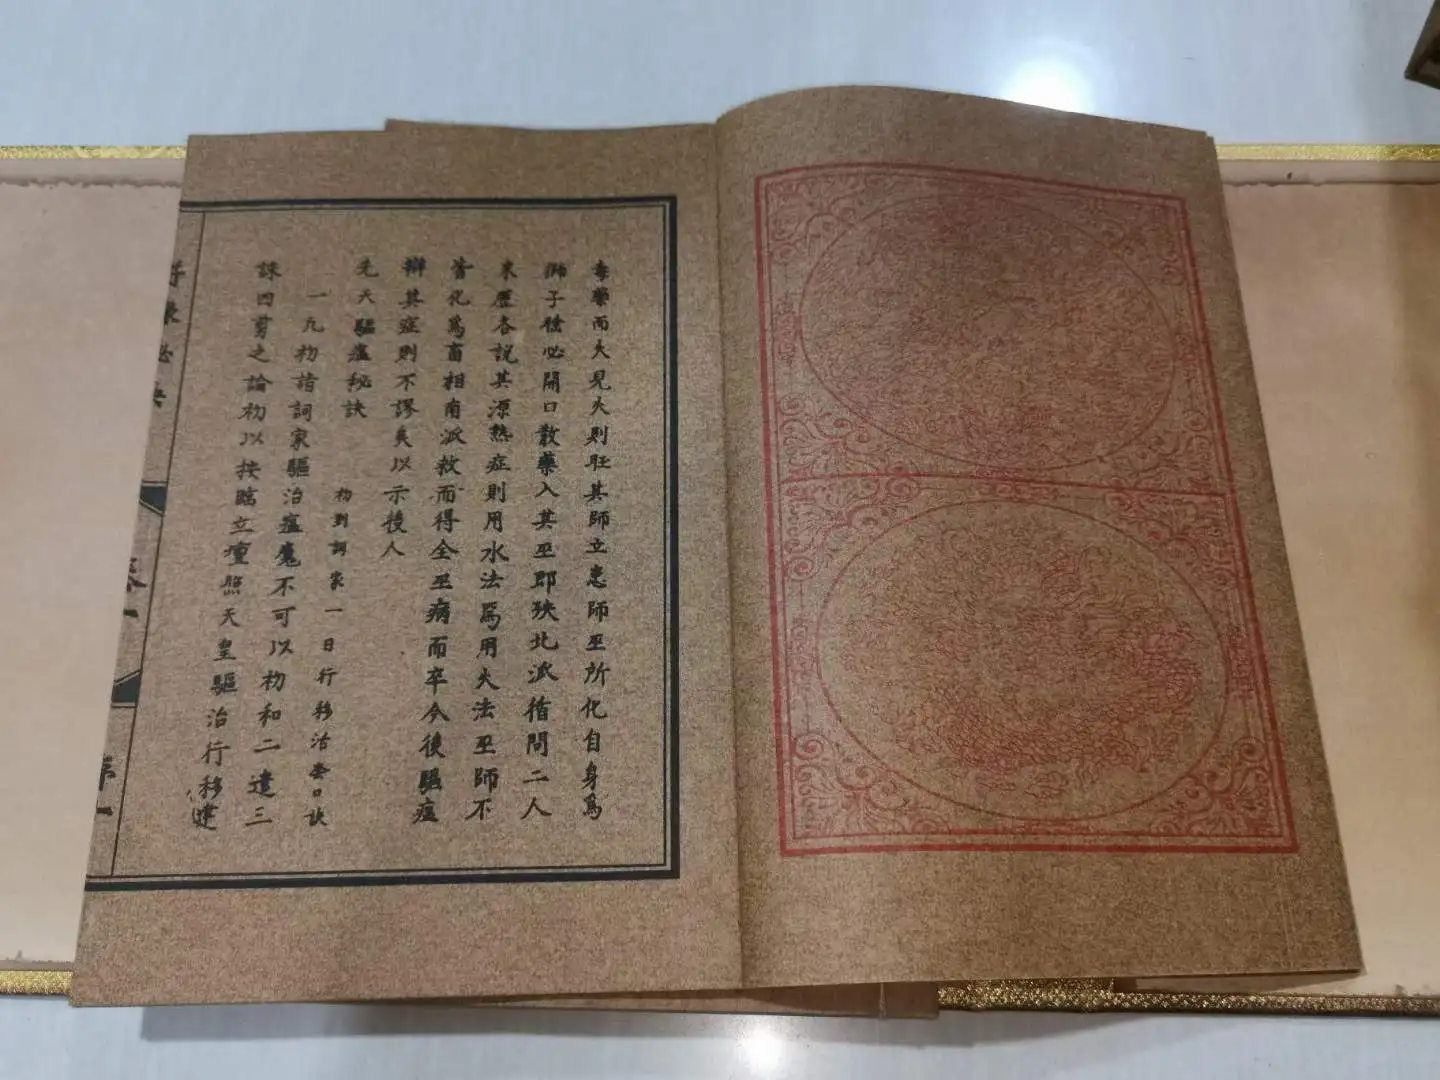 毒藥而火見火則旺其師立患師巫所化自身爲
獅子徃必開口散藥入其巫即殃北派循問二人
來歷各說其源熱症則用水法爲用火法巫師不
當化爲畜相南派救而得全巫病而卒今後驅瘟
辯其症則不謬矣以示後人
先天驅瘟秘訣
初到詞家一日行移治
口訣
一凡初諸詞家驅治瘟魔不可以初和二遣三
誅四剪之論初以按臨立壇照天皇驅治行移建
卷一
第一